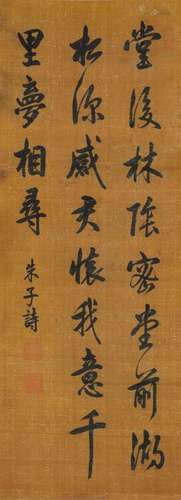 堂後林陰密堂前湖
水深感君懷我意千
里夢相尋
朱子詩